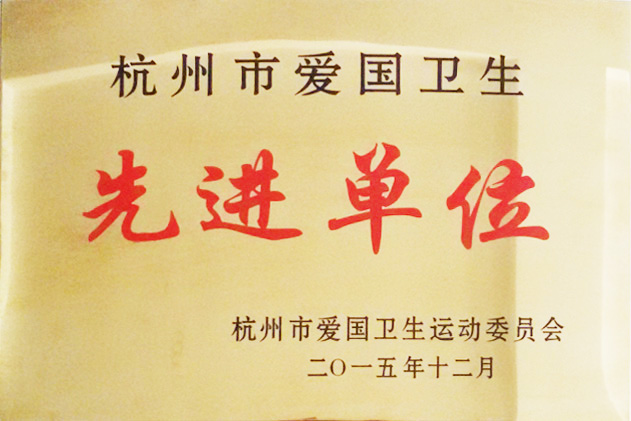 杭州市爱国卫生
先进单位
杭州市爱国卫生运动委员会
二〇一五年十二月